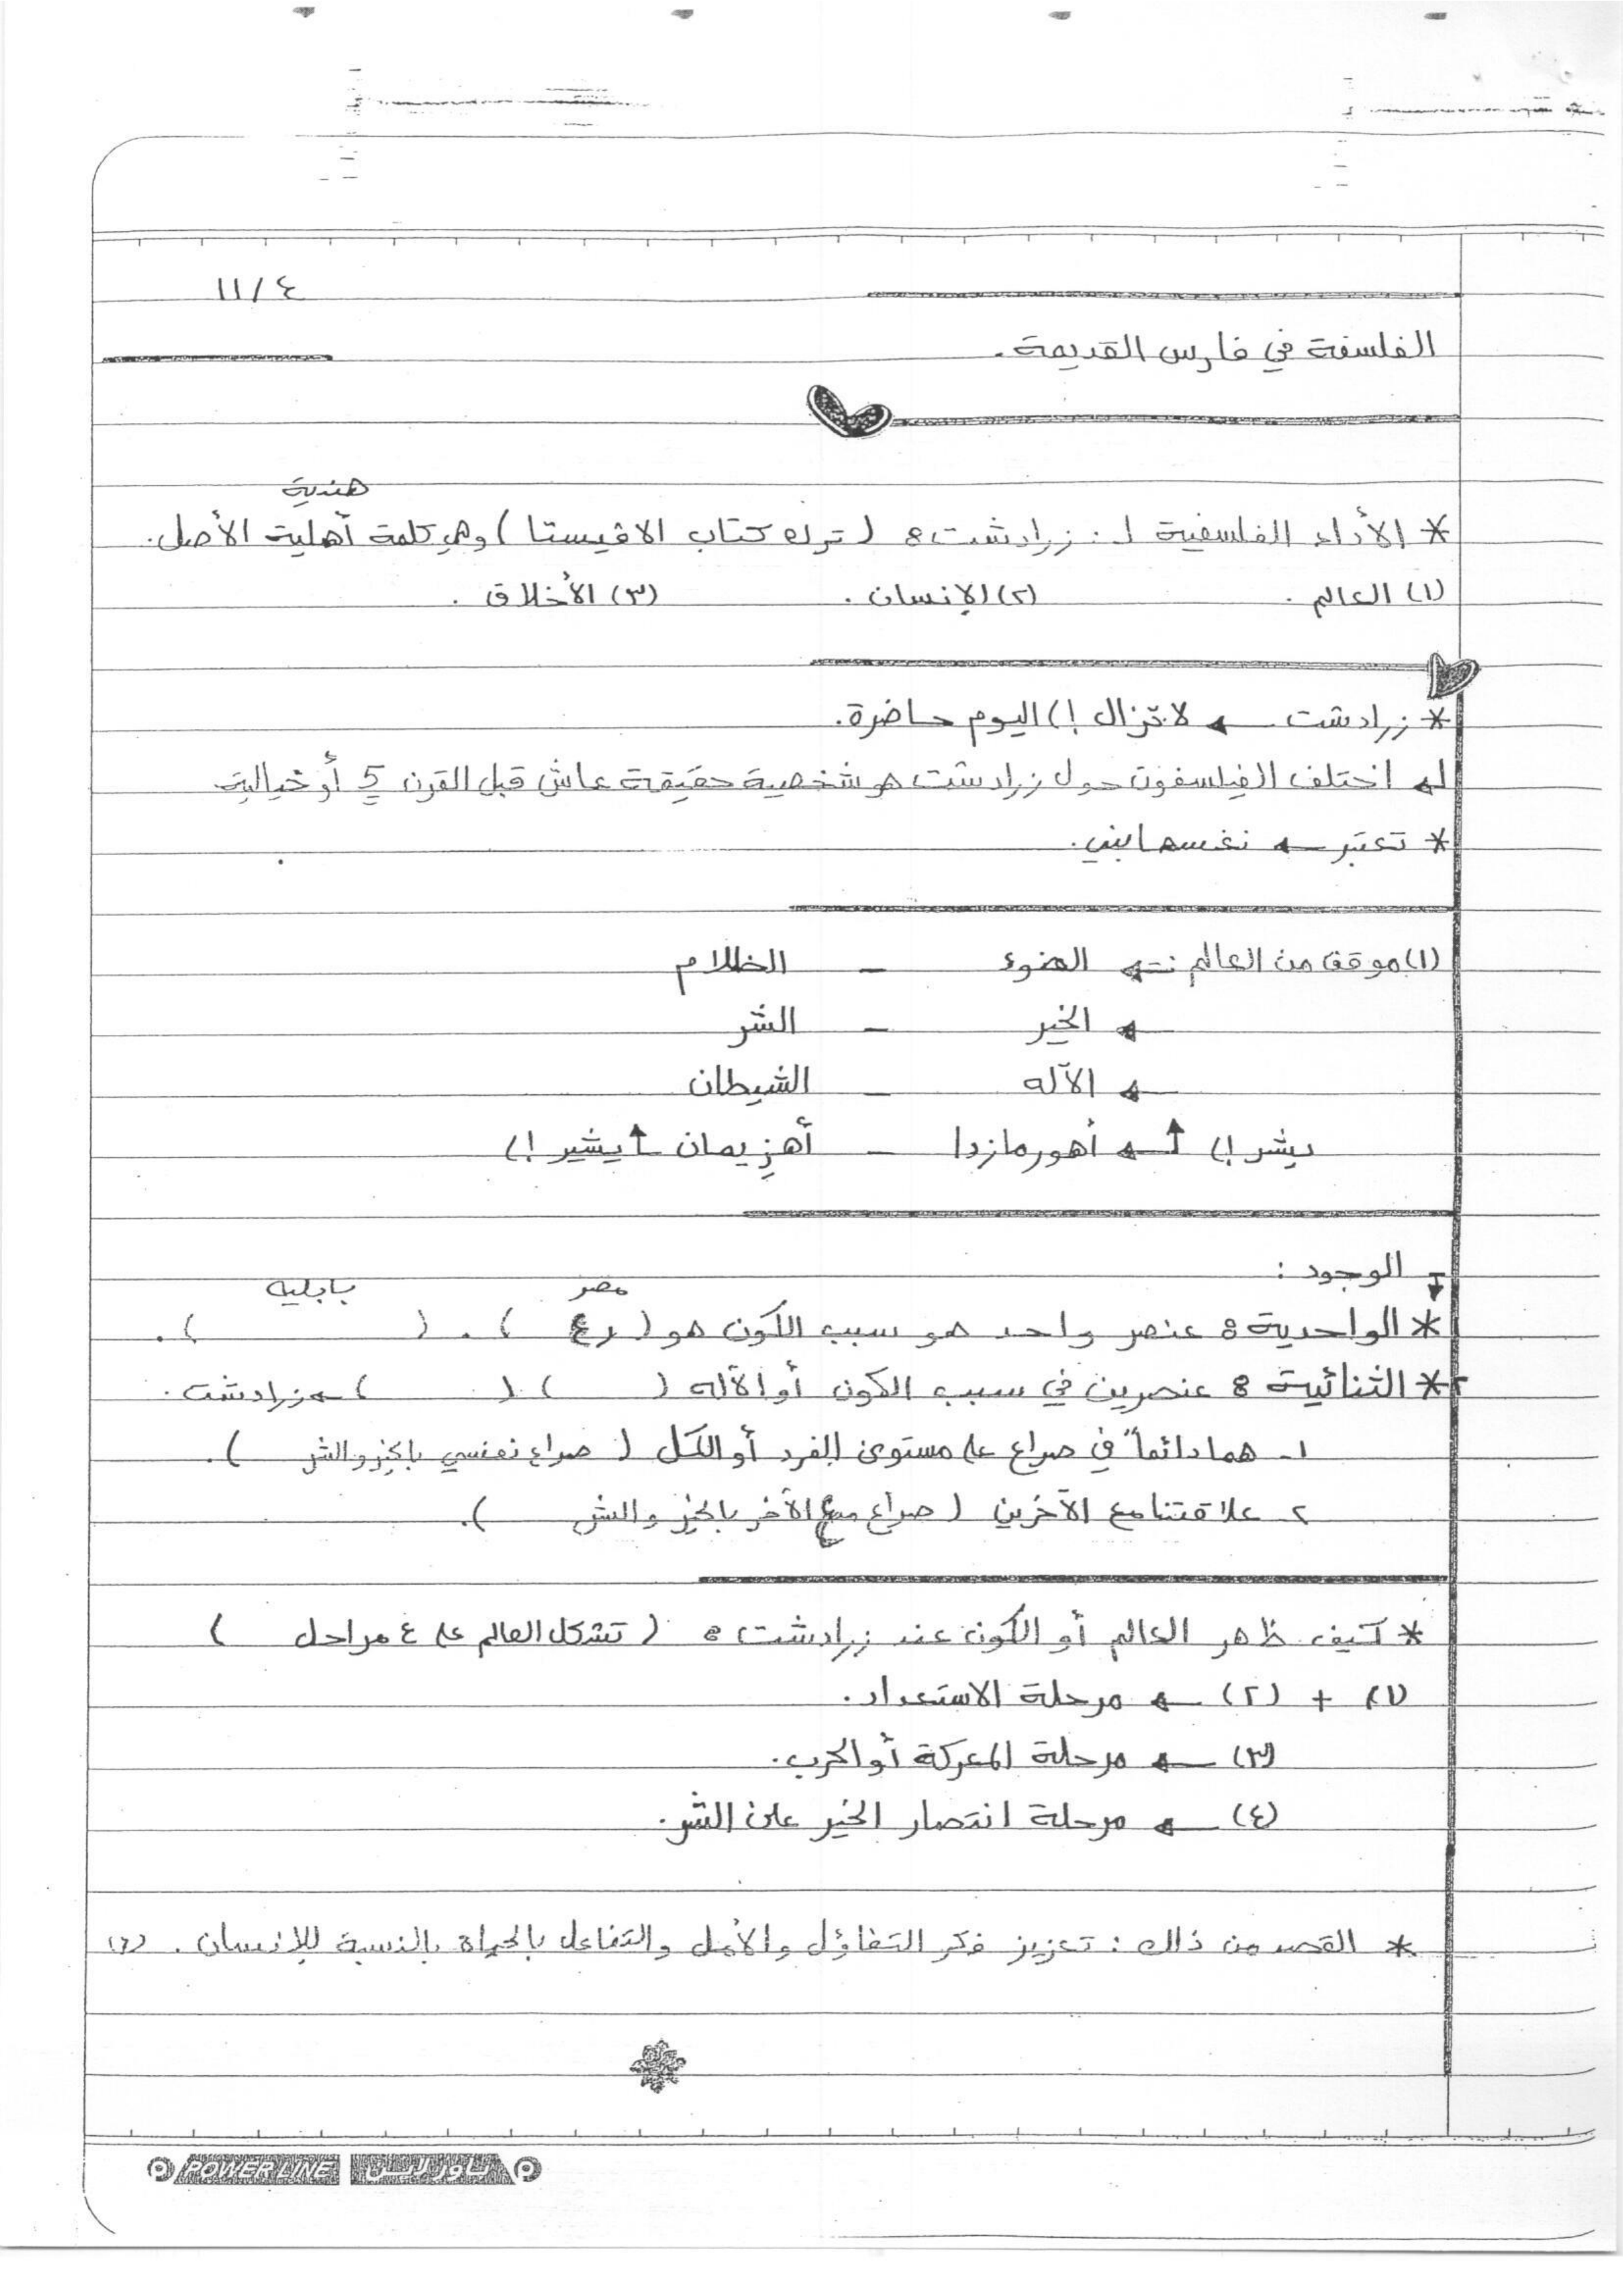 ١١/٤
الفلسفة في فارس القديمة.
هندية
* الأداء الفلسفية لـ: زرادشت: (ترك كتاب الافيستا) وهي كلمة أهلية الأصل.
(١) العالم. (٢) الإنسان. (٣) الأخلاق.
* زرادشت ← لا تزال إلى اليوم حاضرة.
اختلف الفيلسفون حول زرادشت هو شخصية حقيقة عاش قبل القرن 5 أو خيالية
* تعتبر ← نفسها بني.
(١) موقف من العالم: ← الضوء - الظلام
← الخير - الشر
← الآله - الشيطان
يشر إلى ↑ ← أهورمازدا - أهريمان ↑ يشير إلى
الوجود:
مصر بابليه
* الواحدية: عنصر واحد هو سبب الكون هو ( رع ). ( ).
* الثنائية: عنصرين في سبب الكون أو الآله ( ) ( ) ← زرادشت.
١- هما دائماً في صراع على مستوى الفرد أو الكل ( صراع نفسي بالخير والشر ).
٢- علاقتنا مع الآخرين ( صراع مع الآخر بالخير والشر ).
* كيف ظهر العالم أو الكون عند زرادشت: ( تشكل العالم على ٤ مراحل )
(١) + (٢) ← مرحلة الاستعداد.
(٣) ← مرحلة المعركة أو الحرب.
(٤) ← مرحلة انتصار الخير على الشر.
* القصد من ذلك: تعزيز فكر التفاؤل والأمل والتفاعل بالحياة بالنسبة للإنسان.
POWER LINE باور لاين